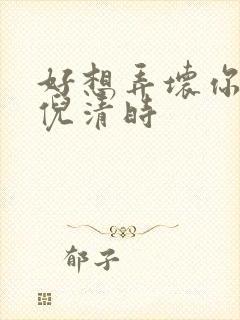 好想弄壞你
倪清時
郁子